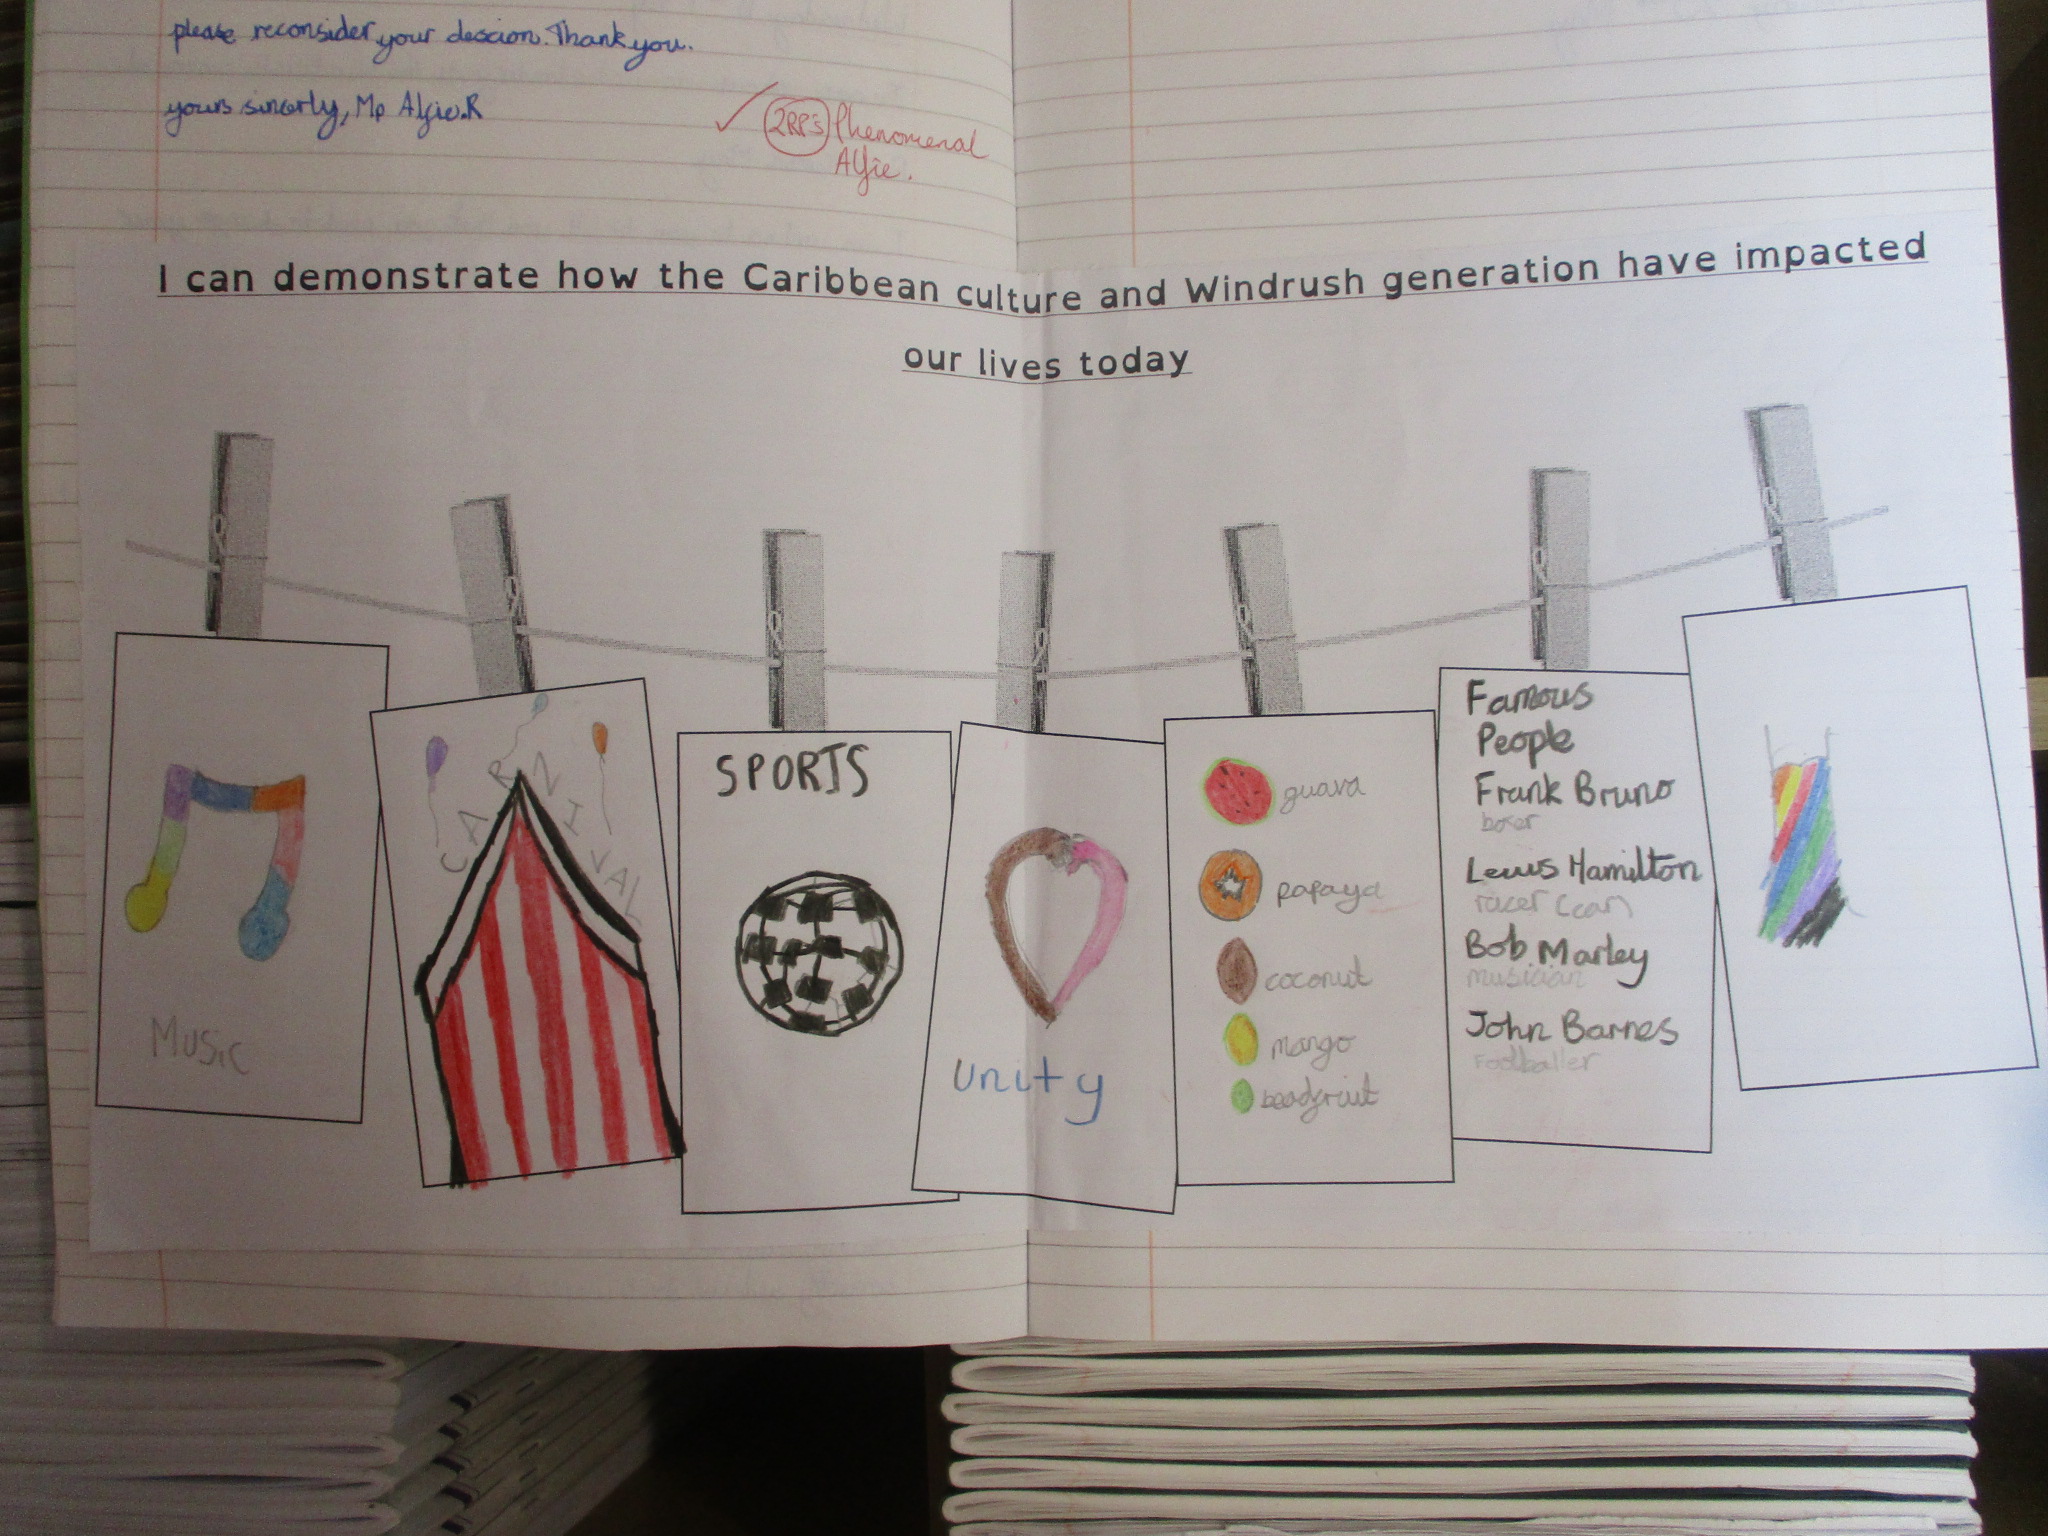 please reconsider your descion. Thank you.
yours sincerly, Mr Alfie.R
2RP's Phenomenal
Alfie.
I can demonstrate how the Caribbean culture and Windrush generation have impacted
our lives today
MUSIC
CARNIVAL
SPORTS
unity
guava
papaya
coconut
mango
beadfruit
Famous
People
Frank Bruno
boxer
Lewis Hamilton
racer (car)
Bob Marley
musician
John Barnes
Footballer